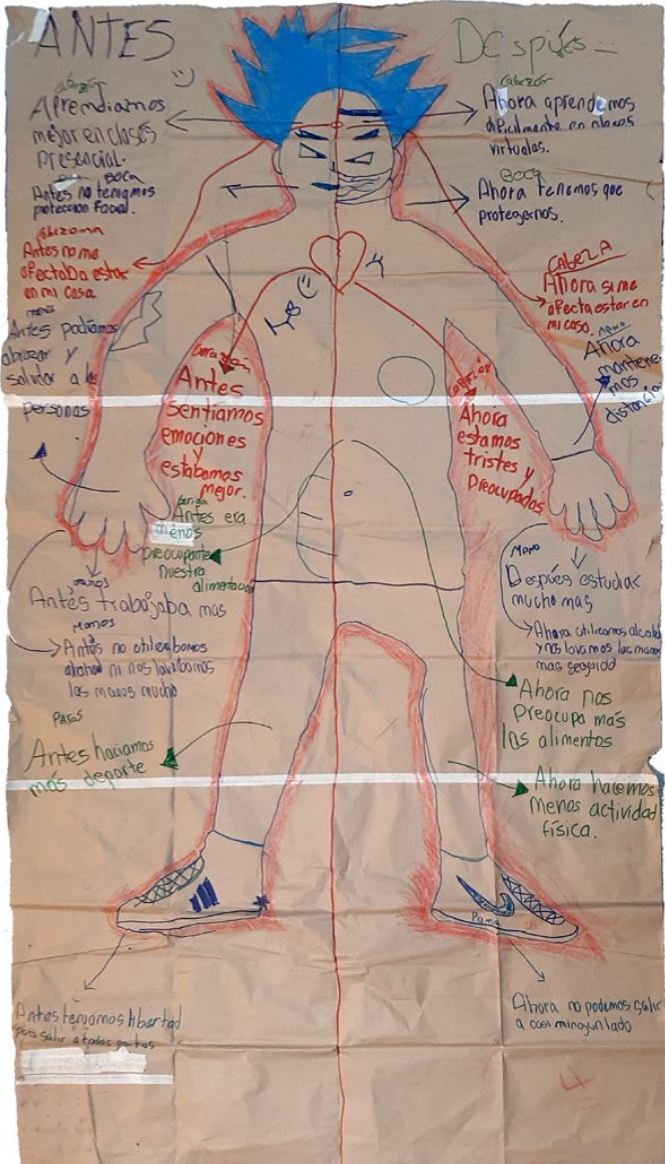 ANTES
cabezón
Aprendiamos
mejor en clases
presencial.
Boca
Antes no teniamos
protección facial.
Antes no me
afectaba estar
en mi casa
mano
Antes podiamos
abrazar y
saludar a las
personas
corazón
Antes
sentiamos
emociones
y
estabamos
mejor.
Antes era
menos
preocupante
nuestra
alimentacion
manos
Antes trabajaba mas
Manos
Antes no utilizabamos
alcohol ni nos lavabamos
las manos mucho
PATAS
Antes haciamos
más deporte
Antes teniamos libertad
para salir a todas partes
Después
cabezón
Ahora aprendemos
dificilmente en clases
virtuales.
BOCA
Ahora tenemos que
protegernos.
CABEZA
Ahora si me
afecta estar en
mi casa.
mano
Ahora
mantene
mos
distancia
corazón
Ahora
estamos
tristes y
preocupados
Mano
Después estudiar
mucho mas
Ahora utilizamos alcohol
y nos lavamos las manos
mas seguido
Ahora nos
preocupa más
los alimentos
Ahora hacemos
menos actividad
física.
Puma
Ahora no podemos salir
a casi ningun lado